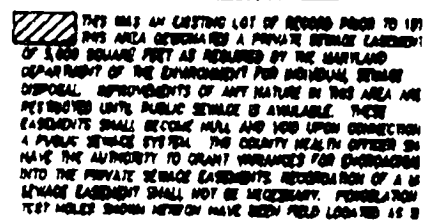 THIS WAS AN EXISTING LOT OF RECORD PRIOR TO 197
THIS AREA DESIGNATES A PRIVATE SEWAGE EASEMENT
OF 5,000 SQUARE FEET AS REQUIRED BY THE MARYLAND
DEPARTMENT OF THE ENVIRONMENT FOR INDIVIDUAL SEWAGE
DISPOSAL. IMPROVEMENTS OF ANY NATURE IN THIS AREA ARE
RESTRICTED UNTIL PUBLIC SEWAGE IS AVAILABLE. THESE
EASEMENTS SHALL BECOME NULL AND VOID UPON CONNECTION
A PUBLIC SEWAGE SYSTEM. THE COUNTY HEALTH OFFICER SH
HAVE THE AUTHORITY TO GRANT VARIANCES FOR ENCROACHM
INTO THE PRIVATE SEWAGE EASEMENTS. RECORDATION OF A
SEWAGE EASEMENT SHALL NOT BE NECESSARY. PERCOLATION
TEST HOLES SHOWN HEREON HAVE BEEN FIELD LOCATED AS